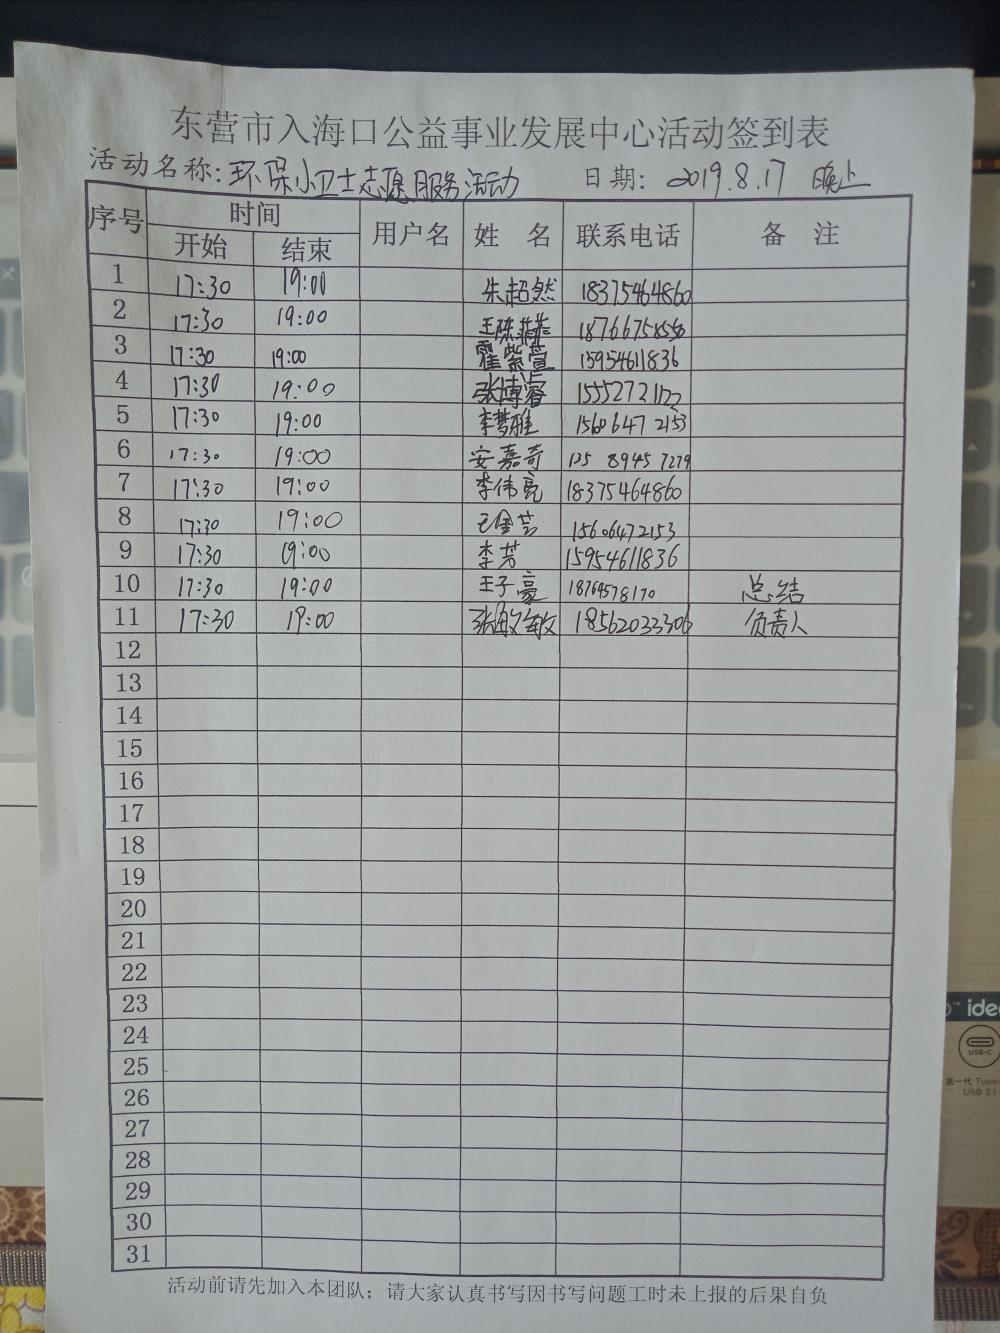 东营市入海口公益事业发展中心活动签到表
活动名称:环保小卫士志愿服务活动 日期: 2019.8.17 晚上
序号 时间 用户名 姓 名 联系电话 备 注
开始 结束
1 17:30 19:00 朱超然 18375464860
2 17:30 19:00 王陈菲菲
3 17:30 19:00 霍紫萱 15954611836
4 17:30 19:00 张博睿 15552721122
5 17:30 19:00 李梦雅 15606472153
6 17:30 19:00 安嘉奇 135 8945 7279
7 17:30 19:00 李伟亮 18375464860
8 17:30 19:00 15606472153
9 17:30 19:00 李芳 15954611836
10 17:30 19:00 王子豪 18769578170 总结
11 17:30 19:00 张敏敏 18562033306 负责人
12
13
14
15
16
17
18
19
20
21
22
23
24
25
26
27
28
29
30
31
活动前请先加入本团队;请大家认真书写因书写问题工时未上报的后果自负
idea
USB-C
第一代 Type-
USB 3.1